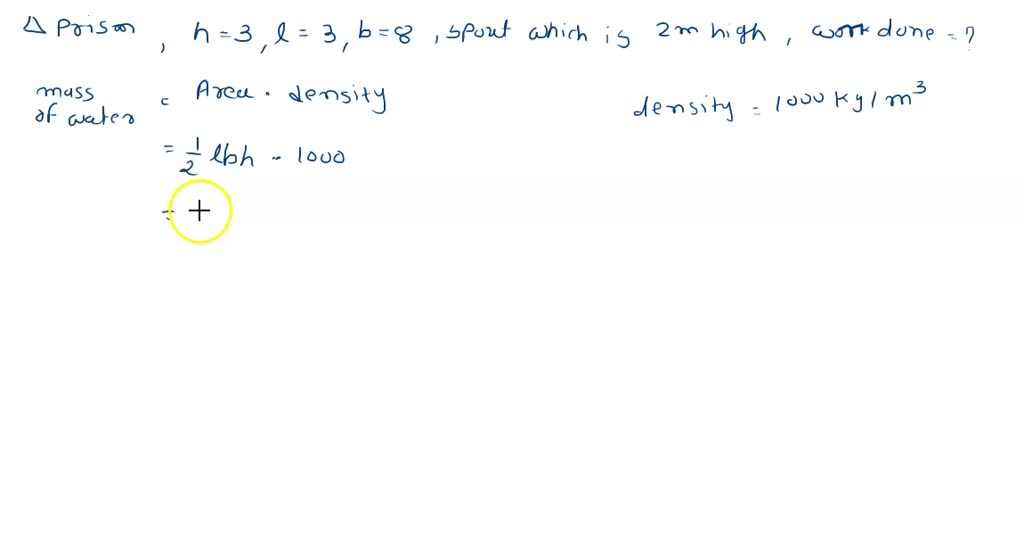 Δ Prison , h = 3 , l = 3 , b = 8 , spout which is 2m high , work done = ?
mass of water = Area . density
density = 1000 kg / m³
= 1/2 lbh - 1000
=